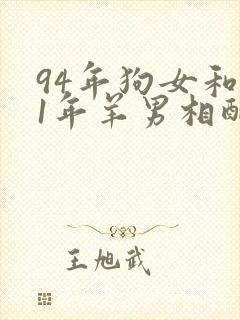 94年狗女和
1年羊男相配
王旭武